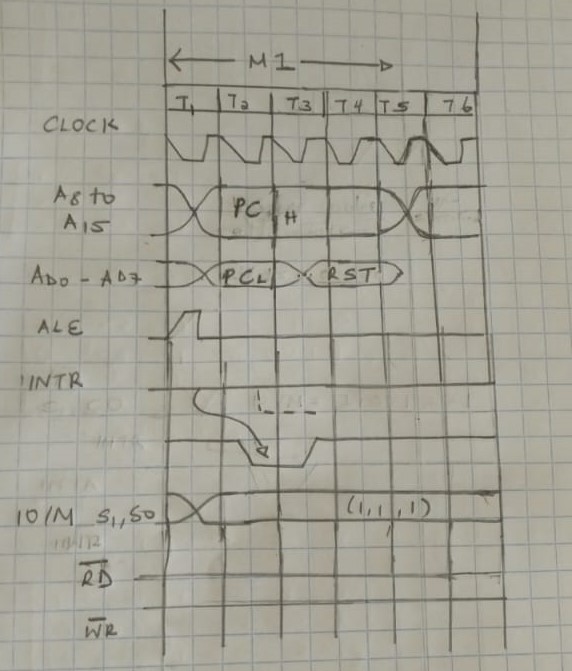 M1
T1 T2 T3 T4 T5 T6
CLOCK
A8 to
A15
PC H
AD0 - AD7
PCL
RST
ALE
INTR
IO/M S1,, S0
(1,1,1)
R̅D̅
W̅R̅